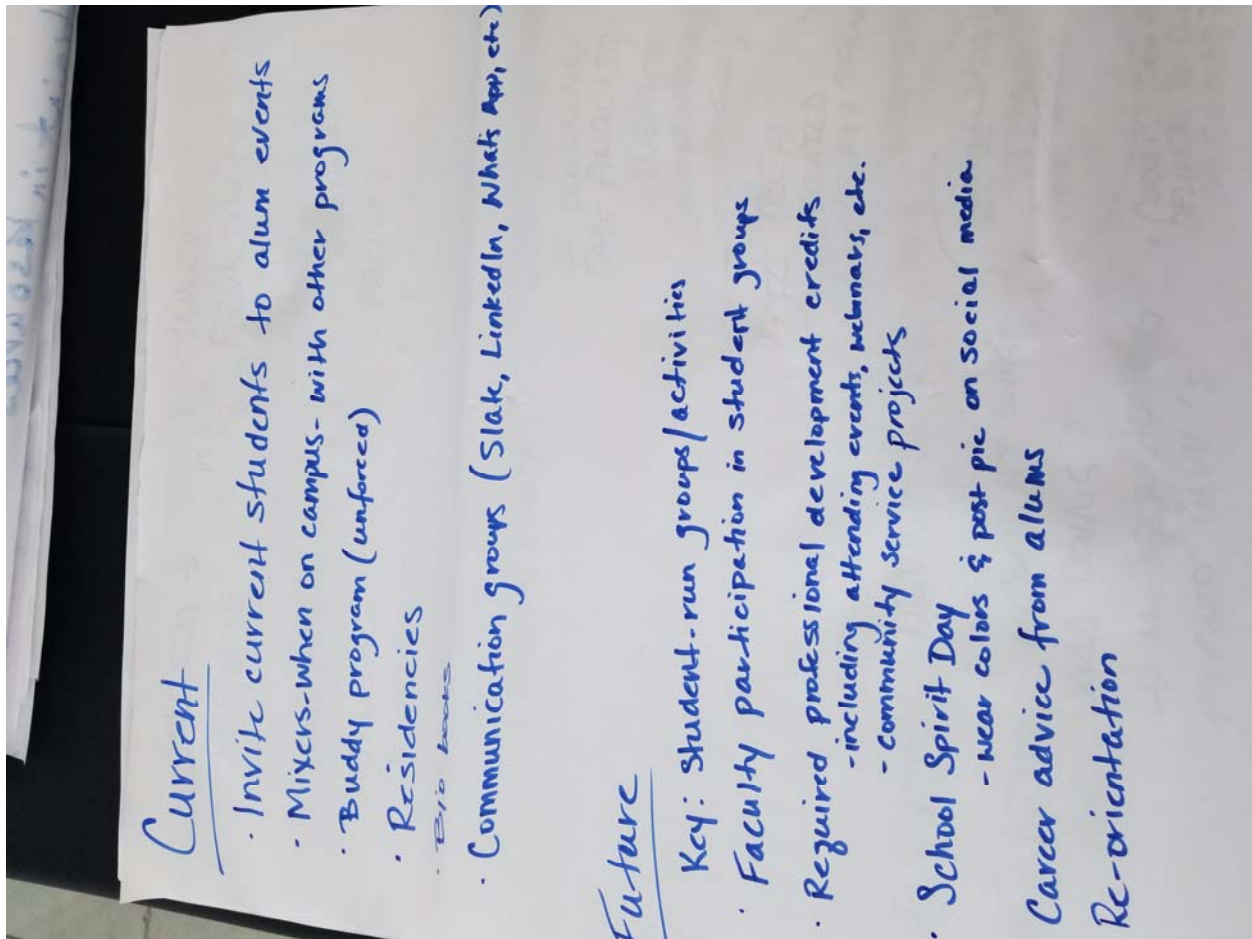 Current
· Invite current students to alum events
· Mixers-when on campus- with other programs
· Buddy program (unforced)
· Residencies
· Bio books
· Communication groups (Slak, LinkedIn, Whats App, etc)
Future
Key: Student-run groups/activities
· Faculty participation in student groups
· Required professional development credits
- including attending events, webinars, etc.
- community service projects
· School Spirit Day
- wear colors & post pic on social media
Career advice from alums
Re-orientation